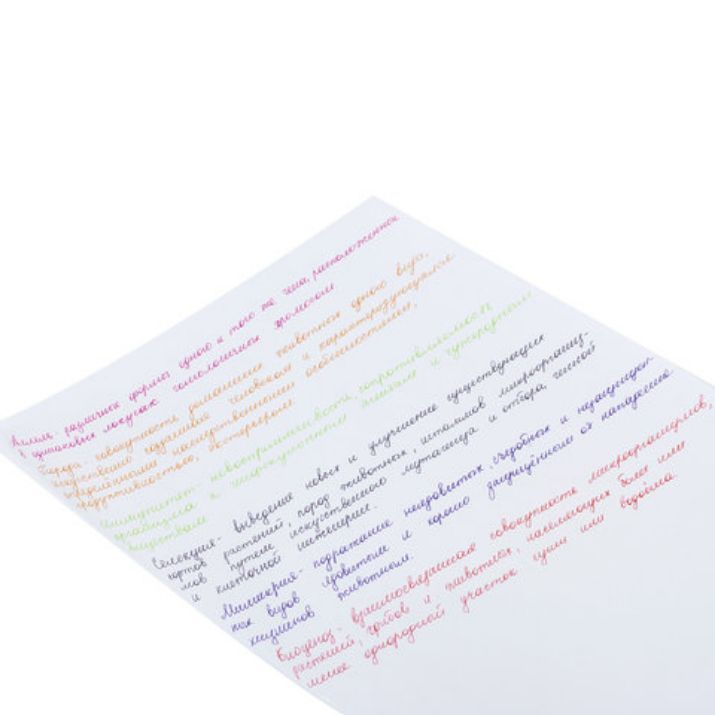 Аллель- различные формы одного и того же гена, расположенные
в одинаковых локусах гомологичных хромосом.
Порода- совокупность домашних животных одного вида,
искусственно созданная человеком и характеризующаяся
определёнными наследственными особенностями,
продуктивностью, экстерьером.
Иммунитет- невосприимчивость, сопротивляемость
организма к инфекционным агентам и чужеродным
веществам.
Селекция- выведение новых и улучшение существующих
сортов растений, пород животных, штаммов микроорганиз-
мов путём искусственного мутагенеза и отбора, генной
и клеточной инженерии.
Мимикрия- подражание неядовитых, съедобных и незащищён-
ных видов ядовитым и хорошо защищённым от нападения
хищников животным.
Биоценоз- взаимосвязанная совокупность микроорганизмов,
растений, грибов и животных, населяющих более или
менее однородный участок суши или водоёма.